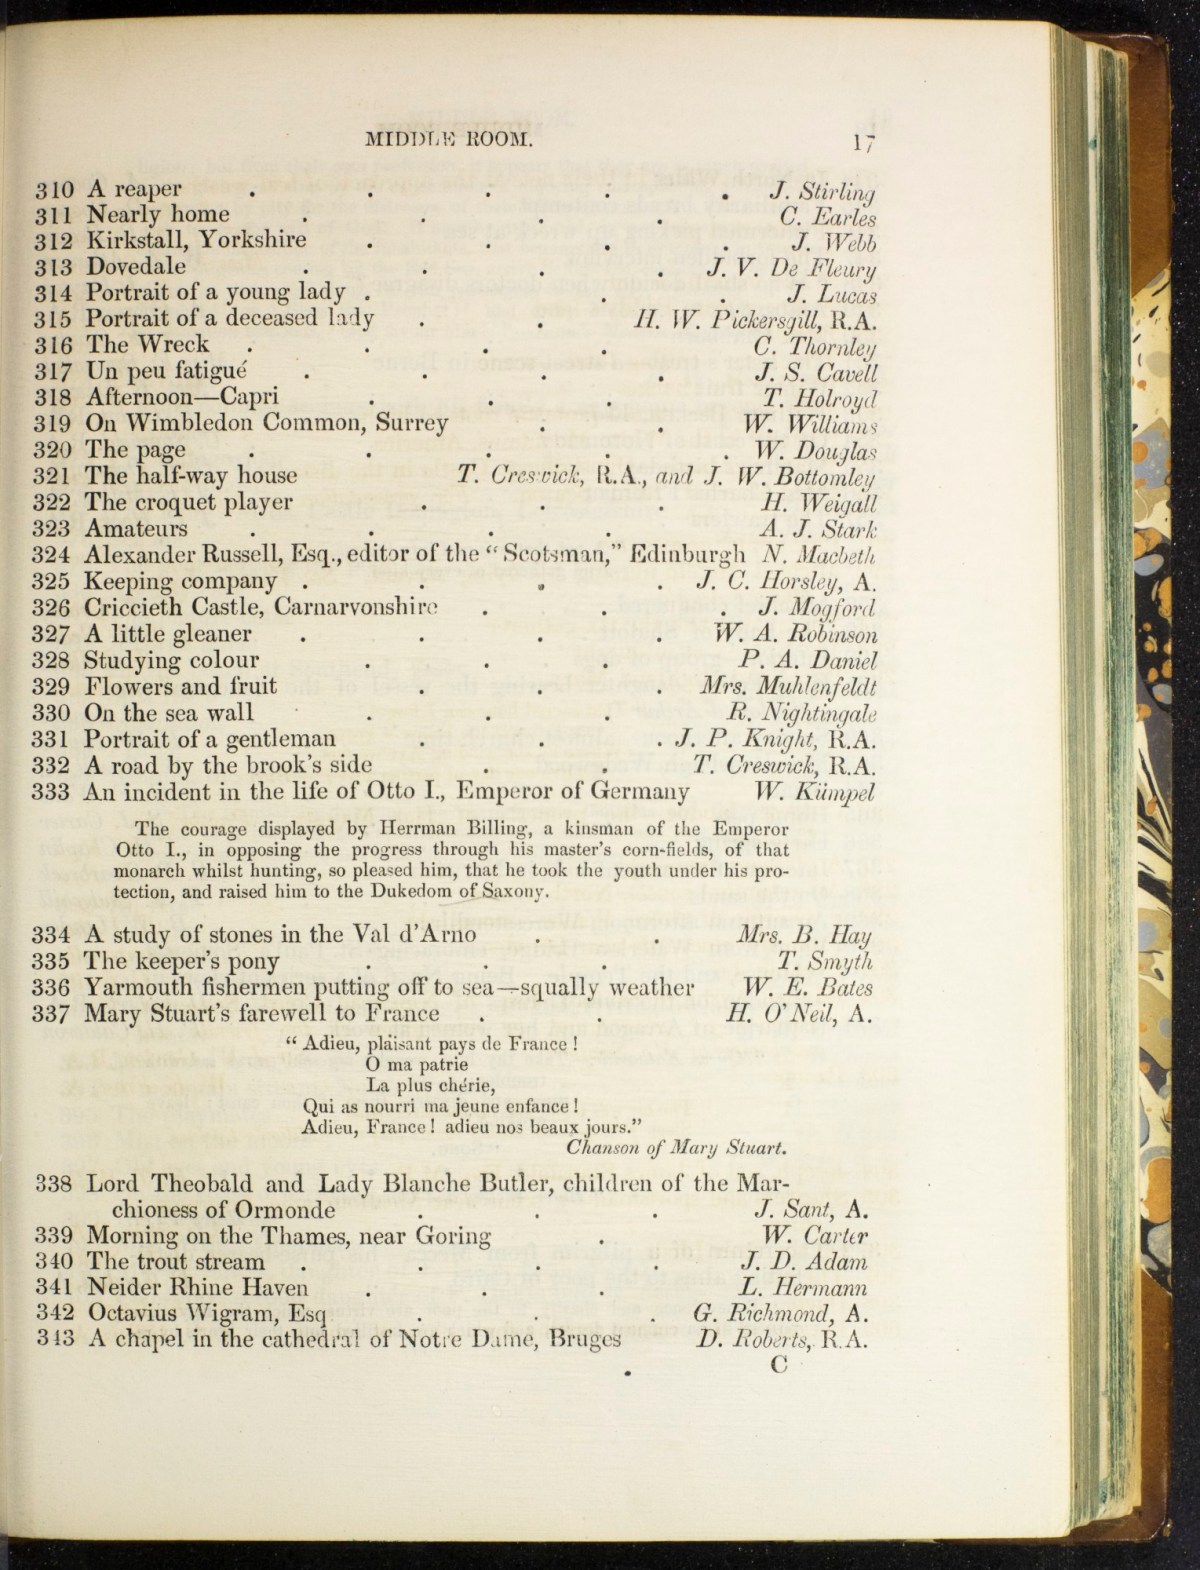 MIDDLE ROOM. 17
310 A reaper . . . . . J. Stirling
311 Nearly home . . . . C. Earles
312 Kirkstall, Yorkshire . . . . J. Webb
313 Dovedale . . . . J. V. De Fleury
314 Portrait of a young lady . . . J. Lucas
315 Portrait of a deceased lady . . H. W. Pickersgill, R.A.
316 The Wreck . . . . C. Thornley
317 Un peu fatigué . . . . J. S. Cavell
318 Afternoon—Capri . . . T. Holroyd
319 On Wimbledon Common, Surrey . . W. Williams
320 The page . . . . . W. Douglas
321 The half-way house T. Creswick, R.A., and J. W. Bottomley
322 The croquet player . . . H. Weigall
323 Amateurs . . . . A. J. Stark
324 Alexander Russell, Esq., editor of the “Scotsman,” Edinburgh N. Macbeth
325 Keeping company . . . . J. C. Horsley, A.
326 Criccieth Castle, Carnarvonshire . . . J. Mogford
327 A little gleaner . . . . W. A. Robinson
328 Studying colour . . . P. A. Daniel
329 Flowers and fruit . . . Mrs. Muhlenfeldt
330 On the sea wall . . . R. Nightingale
331 Portrait of a gentleman . . . J. P. Knight, R.A.
332 A road by the brook's side . . T. Creswick, R.A.
333 An incident in the life of Otto I., Emperor of Germany W. Kümpel
The courage displayed by Herrman Billing, a kinsman of the Emperor
Otto I., in opposing the progress through his master's corn-fields, of that
monarch whilst hunting, so pleased him, that he took the youth under his pro-
tection, and raised him to the Dukedom of Saxony.
334 A study of stones in the Val d'Arno . . Mrs. B. Hay
335 The keeper's pony . . . T. Smyth
336 Yarmouth fishermen putting off to sea—squally weather W. E. Bates
337 Mary Stuart's farewell to France . . H. O'Neil, A.
“ Adieu, plaisant pays de France !
O ma patrie
La plus chérie,
Qui as nourri ma jeune enfance !
Adieu, France ! adieu nos beaux jours.”
Chanson of Mary Stuart.
338 Lord Theobald and Lady Blanche Butler, children of the Mar-
chioness of Ormonde . . . J. Sant, A.
339 Morning on the Thames, near Goring . W. Carter
340 The trout stream . . . . J. D. Adam
341 Neider Rhine Haven . . . L. Hermann
342 Octavius Wigram, Esq . . . G. Richmond, A.
343 A chapel in the cathedral of Notre Dame, Bruges D. Roberts, R.A.
C